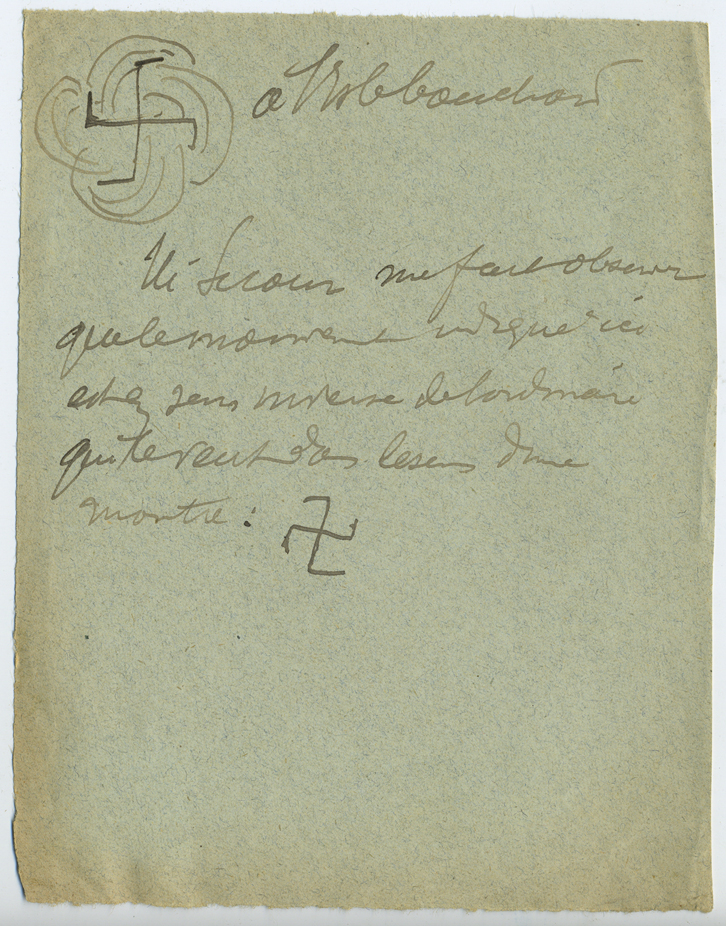 a
me fait observer
que le mouvement indiqué ici
est en sens inverse de l'ordinaire
qui le veut dans le sens d'une
montre :